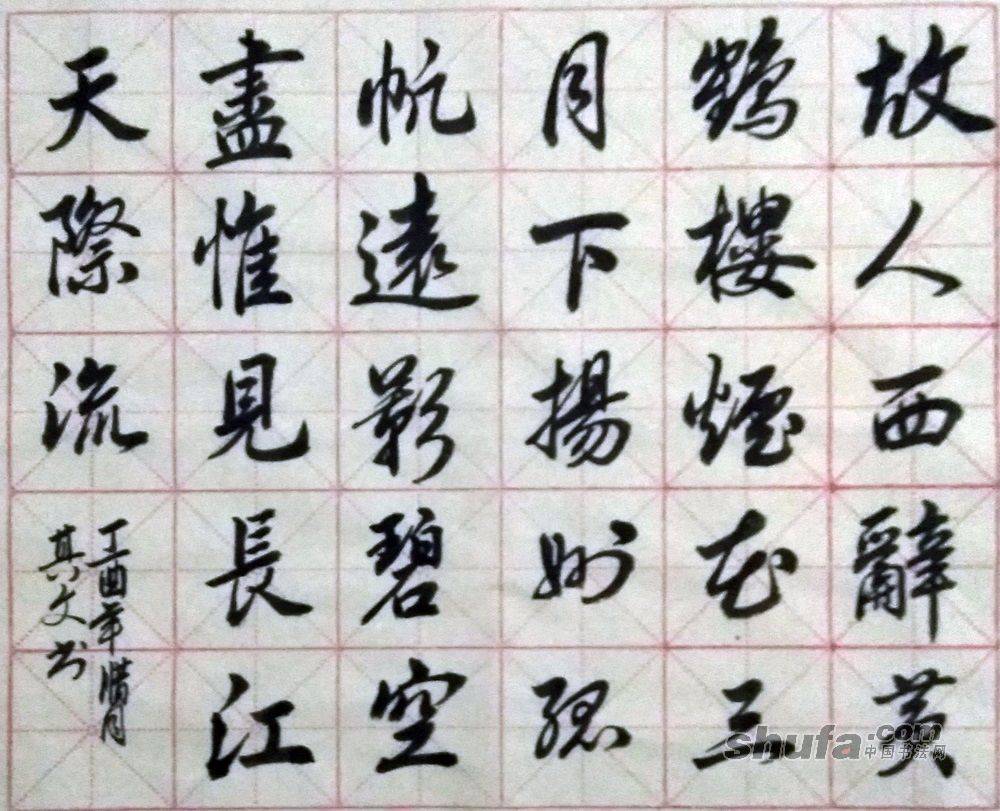 故人西辭黄
鶴樓煙花三
月下揚州孤
帆遠影碧空
盡惟見長江
天際流
丁酉年腊月
其文书
shufa.com
中国书法网